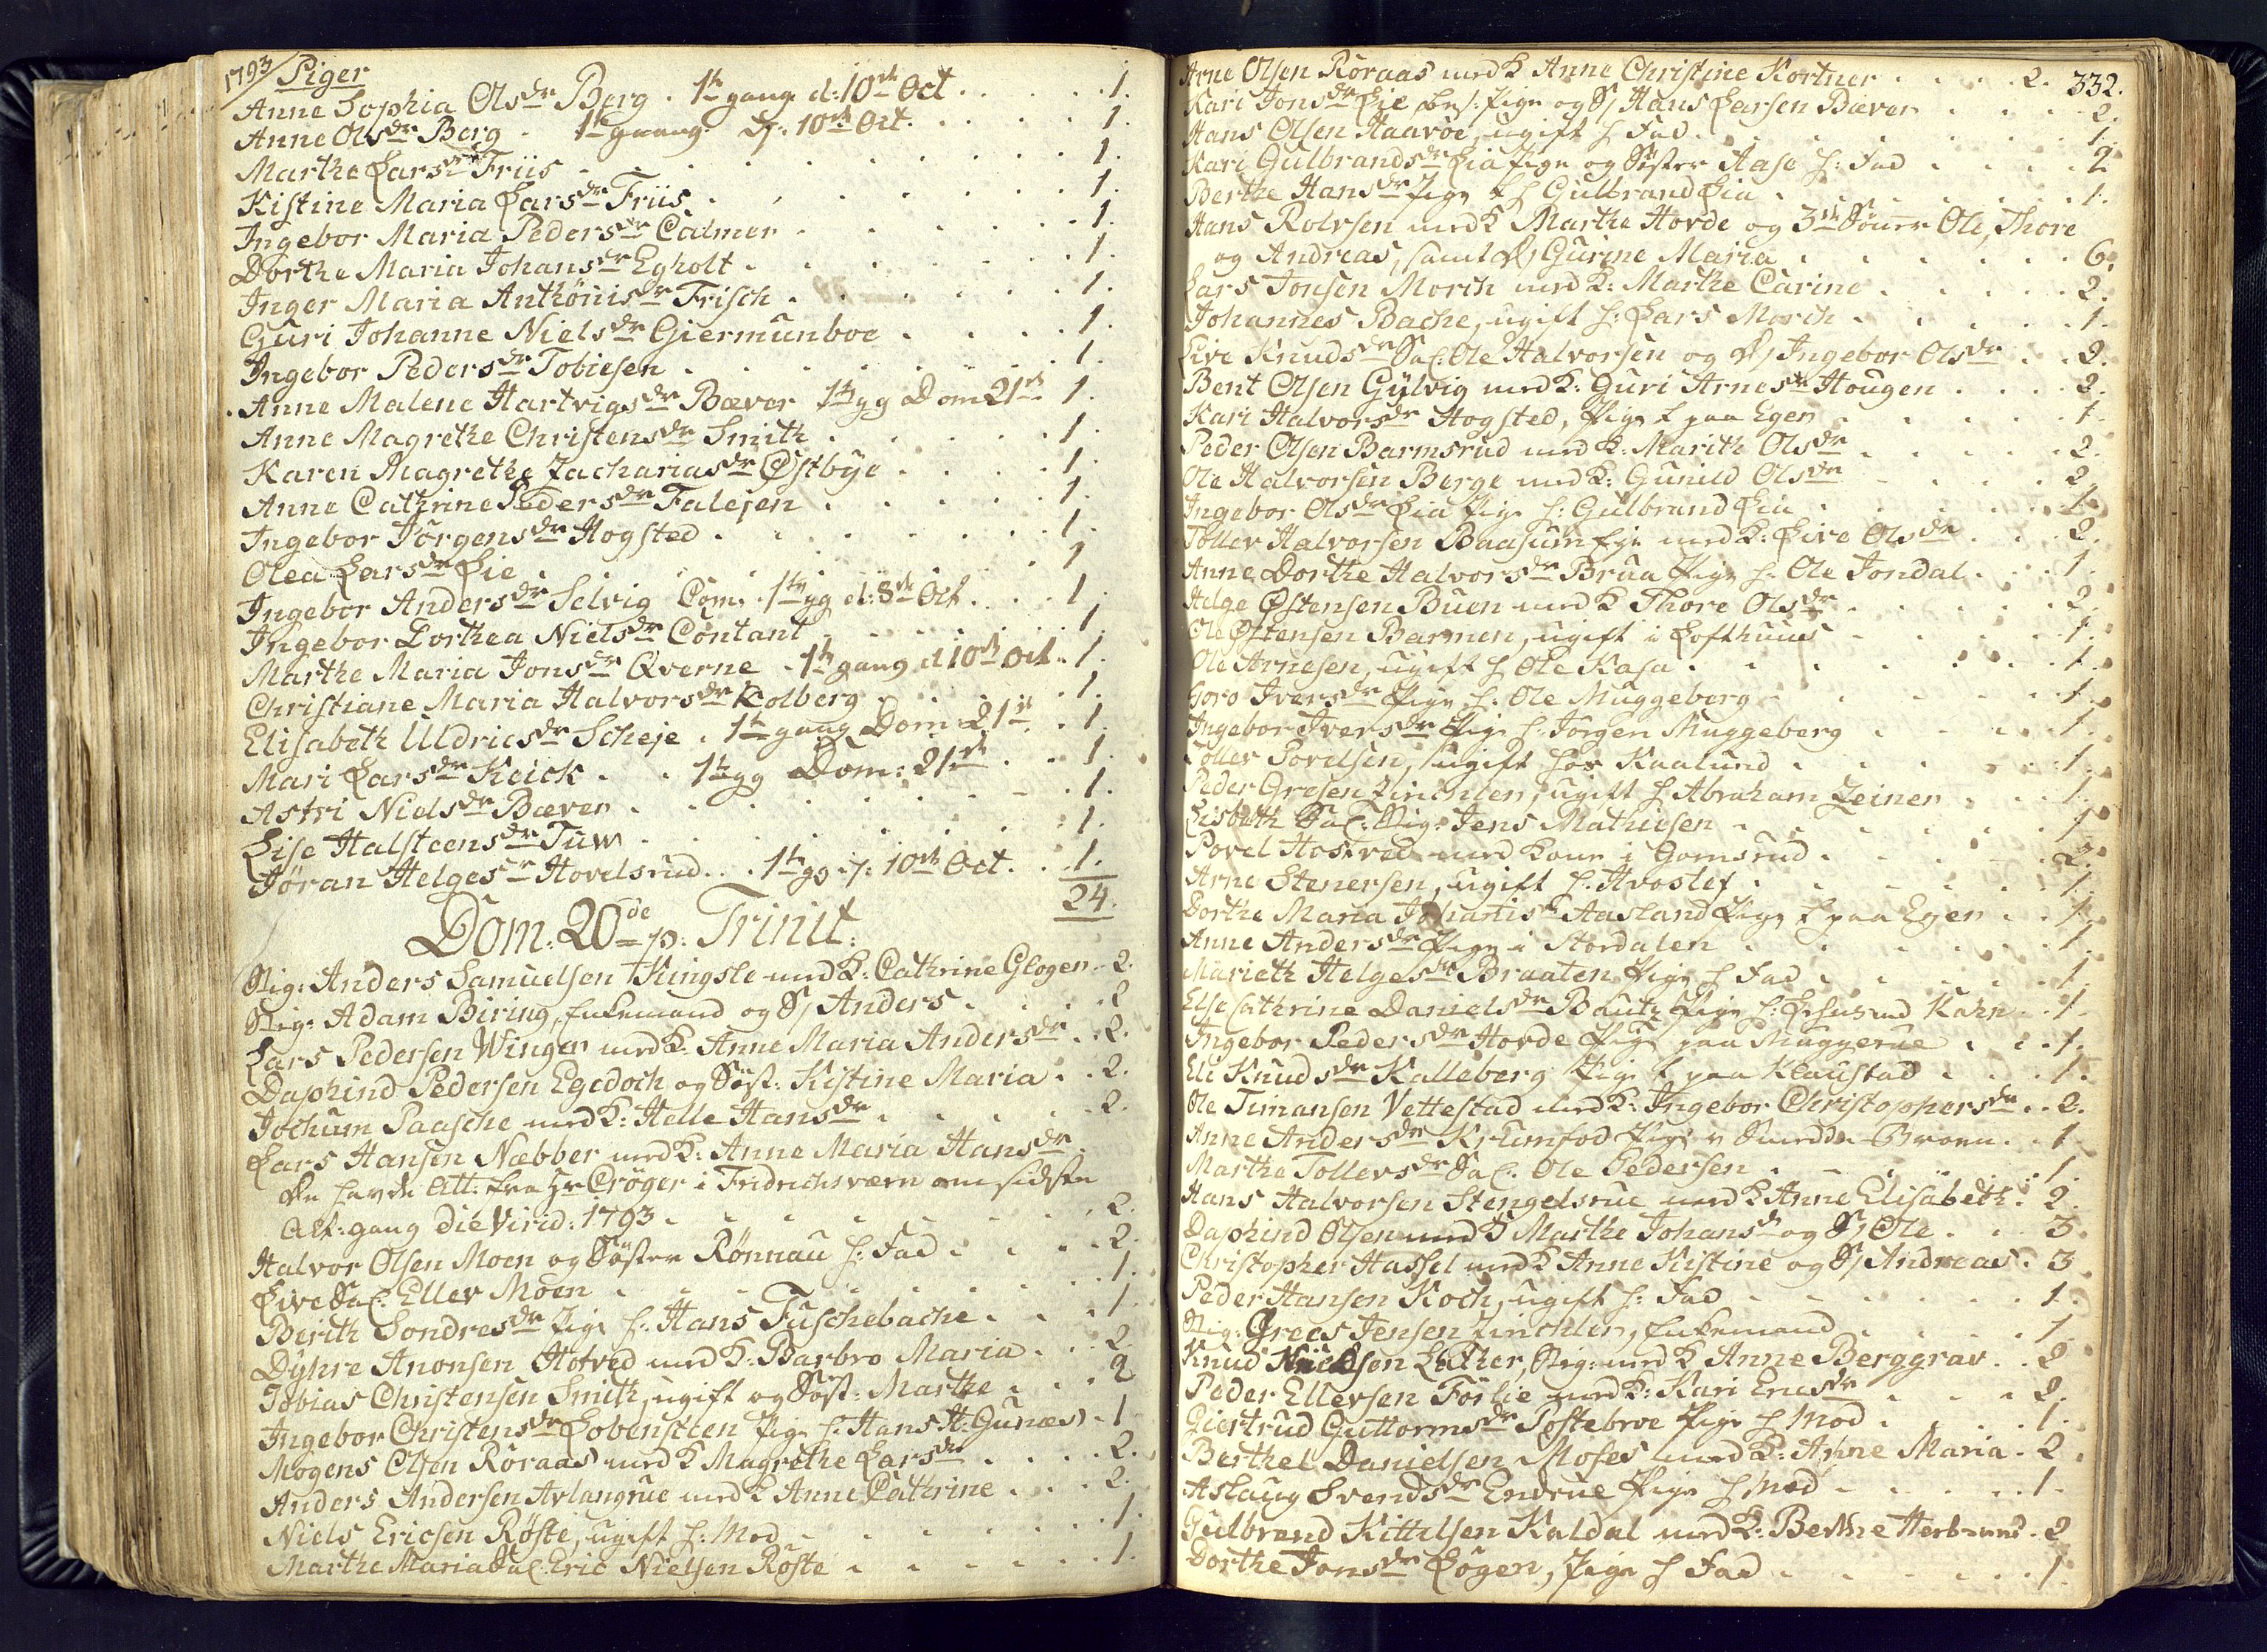 1793
Piger
Anne Sophia Olsdr Berg . 1te gang d: 10de Oct . . . . . 1.
Anne Olsdr Berg . 1te gaang d: 10de Oct. . . . . . 1.
Marthe Larsdr Friis . . . . . 1.
Kistine Maria Larsdr Friis . . . . . 1.
Ingebor Maria Pedersdr Calmer . . . . . 1.
Dorthe Maria Johansdr Egholt . . . . . 1.
Inger Maria Anthönisdr Frisch . . . . . 1.
Guri Johanne Nielsdr Giermunboe . . . . 1.
Ingebor Pedersdr Tobiesen . . . . . 1.
Anne Malene Hartvigsdr Bæver 1te gg Dom 21de 1.
Anne Magrethe Christensdr Smith . . . . . 1.
Karen Magrethe Zachariasdr Østbye . . . . 1.
Anne Cathrine Pedersdr Falesen . . . . . 1.
Ingebor Jörgensdr Hogsted . . . . . 1.
Olea Larsdr Lie . . . . . 1
Ingebor Andersdr Selvig Com: 1te gg d: 8de Oct . . . 1.
Ingebor Dorthea Nielsdr Contant . . . . . 1
Marthe Maria Jonsdr Qverne . 1te gang d 10de Oct . 1.
Christiane Maria Halvorsdr Kolberg . . . . 1.
Elisabeth Uldricsdr Scheje . 1te gang Dom: 21de . 1.
Mari Larsdr Keick . . 1te gg Dom: 21de . . 1.
Astri Nielsdr Bæver . . . . . 1.
Lise Halsteensdr Tuw . . . . . 1.
Jøran Helgesdr Hovelsrud . . 1te gg d: 10de Oct. . 1.
24.
Dom: 20de p: Trinit:
Stig: Anders Samuelsen Kingsle med K: Cathrine Gloger . 2.
Stig: Adam Biring, Enkemand og S/ Anders . . . . 2
Lars Pedersen Winger med K: Anne Maria Andersdr . 2.
Daphind Pedersen Egedoch og Søst: Kistine Maria . . 2.
Jochum Paasche med K: Helle Hansdr . . . . 2.
Lars Hansen Næbber med K: Anne Maria Hansdr
de havde Att: fra Hr Cröger i Fridrichsværn om sidste
Alt: gang die Virid: 1793 . . . . . 2.
Halvor Olsen Moen og Søster Rønnau h: Fad . . . . 2.
Live Sal: Eller Moen . . . . . 1.
Berith Sondresdr Pige h: Hans Fuschebache . . . 1.
Dyhre Anonsen Hotved med K: Barbro Maria . . . 2.
Tobias Christensen Smith, ugift og Søst: Marthe . . . 2
Ingebor Christensdr Lobensteen Pige h: Hans H: Gunæs . 1
Mogens Olsen Röraas med K Magrethe Larsdr . . . . 2.
Anders Andersen Avlangrue med K Anne Cathrine . . . 2.
Niels Ericsen Røste, ugift h: Mod . . . . . 1.
Marthe Maria Sal: Eric Nielsen Røste . . . . . 1.
332.
Arne Olsen Röraas med K Anne Christine Kortner . . . . 2.
Kari Jonsdr Lie Pige og S/ Hans Larsen Bæver . . . 2.
Hans Olsen Haavoe, ugift h: Fad . . . . . 1.
Kari Gulbrandsdr Lia Pige og Søster Aase h: Fad . . . . 2
Berthe Hansdr Pige h: Gulbrand Lia . . . . . 1.
Hans Rolvsen med K Marthe Horde og 3de Sönner Ole, Thore
og Andreas, samt D/ Gurine Maria . . . . . 6.
Lars Jonsen Morch med K: Marthe Carine . . . . . 2.
Johannes Bache, ugift h: Lars Morch . . . . . 1.
Live Knudsdr Sal: Ole Halvorsen og D/ Ingebor Olsdr . . 2.
Bent Olsen Gülvig med K: Guri Arnesdr Hougen . . . . 2.
Kari Halvorsdr Hogsted, Pige paa Egen . . . . . 1.
Peder Olsen Barmsrud med K: Marith Olsdr . . . . . 2.
Ole Halvorsen Berge med K: Gunild Olsdr . . . . . 2
Ingebor Olsdr Lia Pige h: Gulbrand Lia . . . . . 1.
Toller Halvorsen Baasum med K: Live Olsdr . . . 2.
Anne Dorthe Halvorsdr Brua Pige h: Ole Jondal . . . 1.
Helge Østensen Buen med K Thore Olsdr . . . . . 2.
Ole Østensen Barmen, ugift i Lofthuus . . . . . 1.
Ole Arnesen, ugift h Ole Kasa . . . . . 1.
Goro Iversdr Pige h: Ole Muggeberg . . . . . 1.
Ingebor Iversdr Pige h Jörgen Muggeberg . . . . 1.
Toller Povelsen, ugift hos Kaalund . . . . . 1.
Peder Gresen Zincklen, ugift h Abraham Zeiner . . . 1.
Lisbeth Sal: Stig: Jens Mathiesen . . . . . 1
Povel Hostved med Kone i Gomsrud . . . . . 2.
Arne Stenersen, ugift h: Hvoslef . . . . . 1.
Dorthe Maria Aasland Pige paa Egen . . 1.
Anne Andersdr Pige i Stordalen . . . . . 1.
Marieth Helgesdr Braaten Pige h Fad . . . . . 1.
Else Cathrine Danielsdr Bautz Pige h: Kahn . 1.
Ingebor Pedersdr Horde Pige paa Muggerue . . . 1.
Eli Knudsdr Kalleberg Pige paa Klaustad . . . 1.
Ole Timansen Vettestad med K: Ingebor Christophersdr . 2.
Anne Andersdr Krumsod Pige v Broen . . 1
Marthe Tollevsdr Sal: Ole Pedersen . . . . . 1.
Hans Halvorsen Stengelsrue med K Anne Elisabeth . 2.
Daphind Olsen med K Marthe Johansdr og S/ Ole . . 3.
Christopher Hassel med K Anne Kistine og S/ Andreas . 3
Peder Hansen Koch, ugift h: Fad . . . . . 1.
Stig: Grees Jensen Zincklen, Enkemand . . . . . 1
Knud Nielsen Lither, Stig: med K Anne Berggrav . . 2
Peder Ellevsen Förlie med K: Kari Ericsdr . . . . 2.
Giertrud Guttormsdr Postebroe Pige h Mod . . . . 1.
Berthel Danielsen Moses med K: Anne Maria . 2.
Aslaug Svendsdr Endrue Pige h Mod . . . . . 1.
Gulbrand Kittilsen Kaldal med K: Berthe Herbrans . 2
Dorthe Jonsdr Lögen, Pige h Fad . . . . . 1.